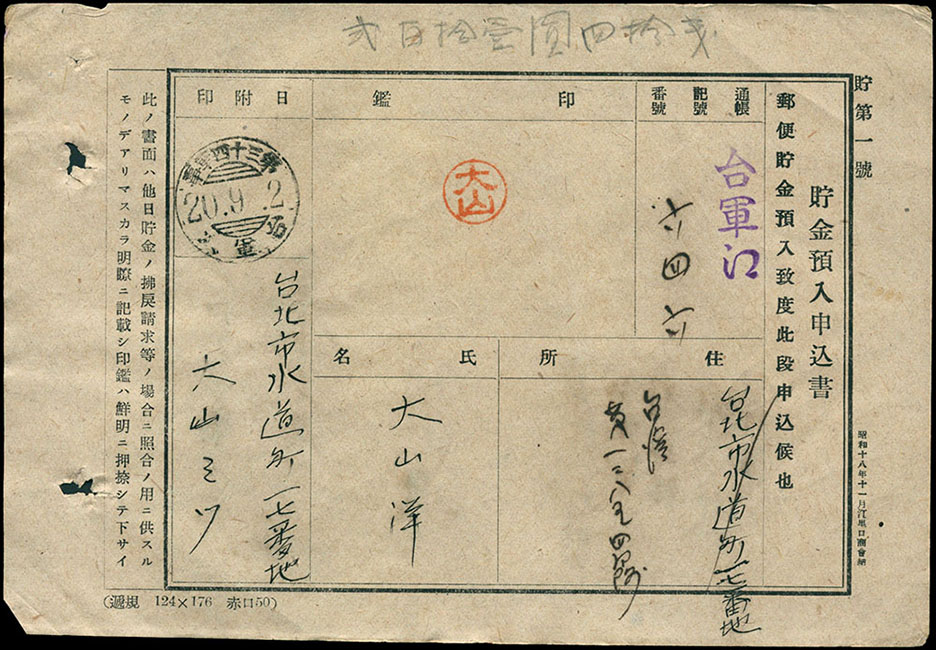 弐百拾壹圓四拾戔
貯第一號
貯金預入申込書
郵便貯金預入致度此段申込候也
通帳
記號
番號
台軍江
六四六
印鑑
大山
日附印
20.9.2
住所
台北市水道町一七番地
台湾
氏名
大山洋
台北市水道町一七番地
大山ミツ
此ノ書面ハ他日貯金ノ拂戾請求等ノ場合ニ照合ノ用ニ供スル
モノデアリマスカラ明瞭ニ記載シ印鑑ハ鮮明ニ押捺シテ下サイ
昭和十八年十一月江里口商會納
(遞規 124×176 赤口50)